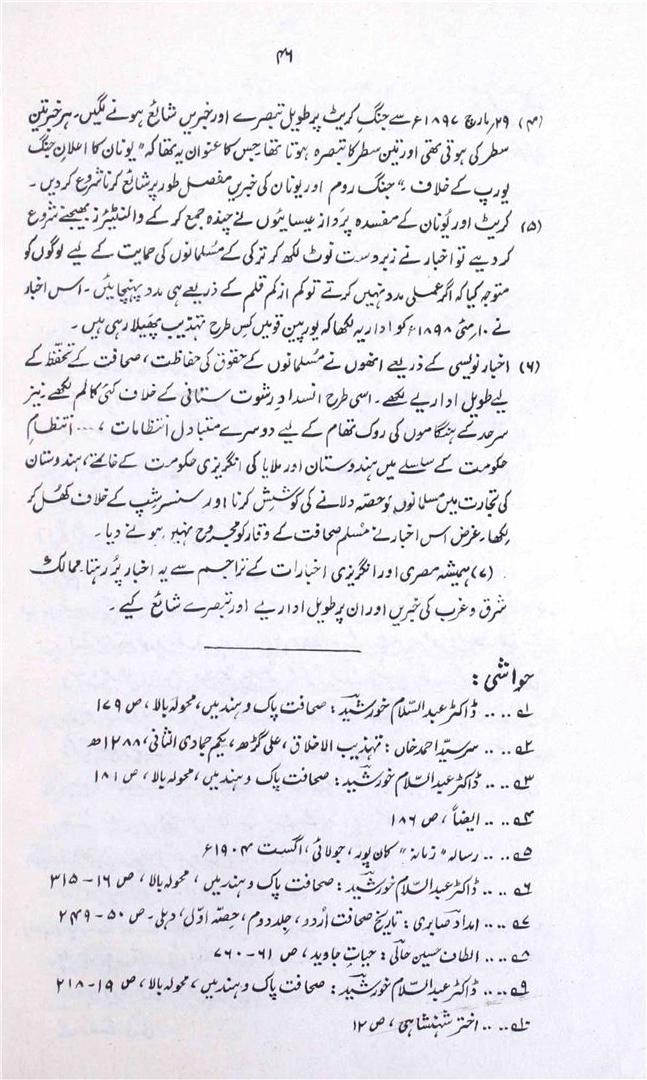 ۴۶
(۴) ۲۹ مارچ ۱۸۹۷ء سے جنگِ کریٹ پر طویل تبصرے اور خبریں شائع ہونے لگیں۔ ہر خبر تین
سطر کی ہوتی تھی اور تین سطر کا تبصرہ ہوتا تھا جس کا عنوان یہ تھا کہ "یونان کا اعلانِ جنگ
یورپ کے خلاف"۔ جنگ روم اور یونان کی خبریں مفصل طور پر شائع کرنا شروع کر دیں۔
(۵) کریٹ اور یونان کے مفسدہ پرداز عیسائیوں نے چندہ جمع کر کے والنٹیئرز بھیجنے شروع
کر دیے تو اخبار نے زبردست نوٹ لکھ کر ترکی کے مسلمانوں کی حمایت کے لیے لوگوں کو
متوجہ کیا کہ اگر عملی مدد نہیں کرتے تو کم از کم قلم کے ذریعے ہی مدد پہنچائیں۔ اس اخبار
نے ۱۰ مئی ۱۸۹۸ء کو اداریہ لکھا کہ یورپین قومیں کس طرح تہذیب پھیلا رہی ہیں۔
(۶) اخبار نویسی کے ذریعے انھوں نے مسلمانوں کے حقوق کی حفاظت، صحافت کے تحفّظ کے
لیے طویل اداریے لکھے۔ اسی طرح انسدادِ رشوت ستانی کے خلاف کئی کالم لکھے نیز
سرحد کے ہنگاموں کی روک تھام کے لیے دوسرے متبادل انتظامات، .... انتظامِ
حکومت کے سلسلے میں ہندوستان اور ملایا کی انگریزی حکومت کے خاتمے، ہندوستان
کی تجارت میں مسلمانوں کو حصّہ دلانے کی کوشش کرنا اور سنسر شپ کے خلاف کھل کر
لکھا۔ غرض اس اخبار نے مسلم صحافت کے وقار کو مجروح نہیں ہونے دیا۔
(۷) ہمیشہ مصری اور انگریزی اخبارات کے تراجم سے یہ اخبار پُر رہتا۔ ممالک
شرق و غرب کی خبریں اور ان پر طویل اداریے اور تبصرے شائع کیے۔
حواشی:
۱؎ .... ڈاکٹر عبدالسّلام خورشید: صحافت پاک و ہند میں، محولہ بالا، ص ۱۷۹
۲؎ .... سرسیّد احمد خاں: تہذیب الاخلاق، علی گڑھ، یکم جمادی الثانی، ۱۲۸۸ھ
۳؎ .... ڈاکٹر عبدالسّلام خورشید: صحافت پاک و ہند میں، محولہ بالا، ص ۱۸۱
۴؎ .... ایضاً، ص ۱۸۶
۵؎ .... رسالہ "زمانہ" کان پور، جولائی، اگست ۱۹۰۴ء
۶؎ .... ڈاکٹر عبدالسّلام خورشید: صحافت پاک و ہند میں، محولہ بالا، ص ۱۶-۳۱۵
۷؎ .... امداد صابری: تاریخ صحافت اُردو، جلد دوم، حصّہ اوّل، دہلی۔ ص ۵۰-۲۴۹
۸؎ .... الطاف حسین حالی: حیاتِ جاوید، ص ۶۱-۷۶۰
۹؎ .... ڈاکٹر عبدالسّلام خورشید: صحافت پاک و ہند میں، محولہ بالا، ص ۱۹-۲۱۸
۱۰؎ .... اختر شہنشاہی، ص ۱۲